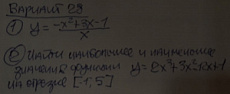 Вариант 28
① y = -x²+3x-1 / x
② Найти наибольшее и наименьшее
значения функции y = 2x³+3x²-12x+1
на отрезке [-1; 5]